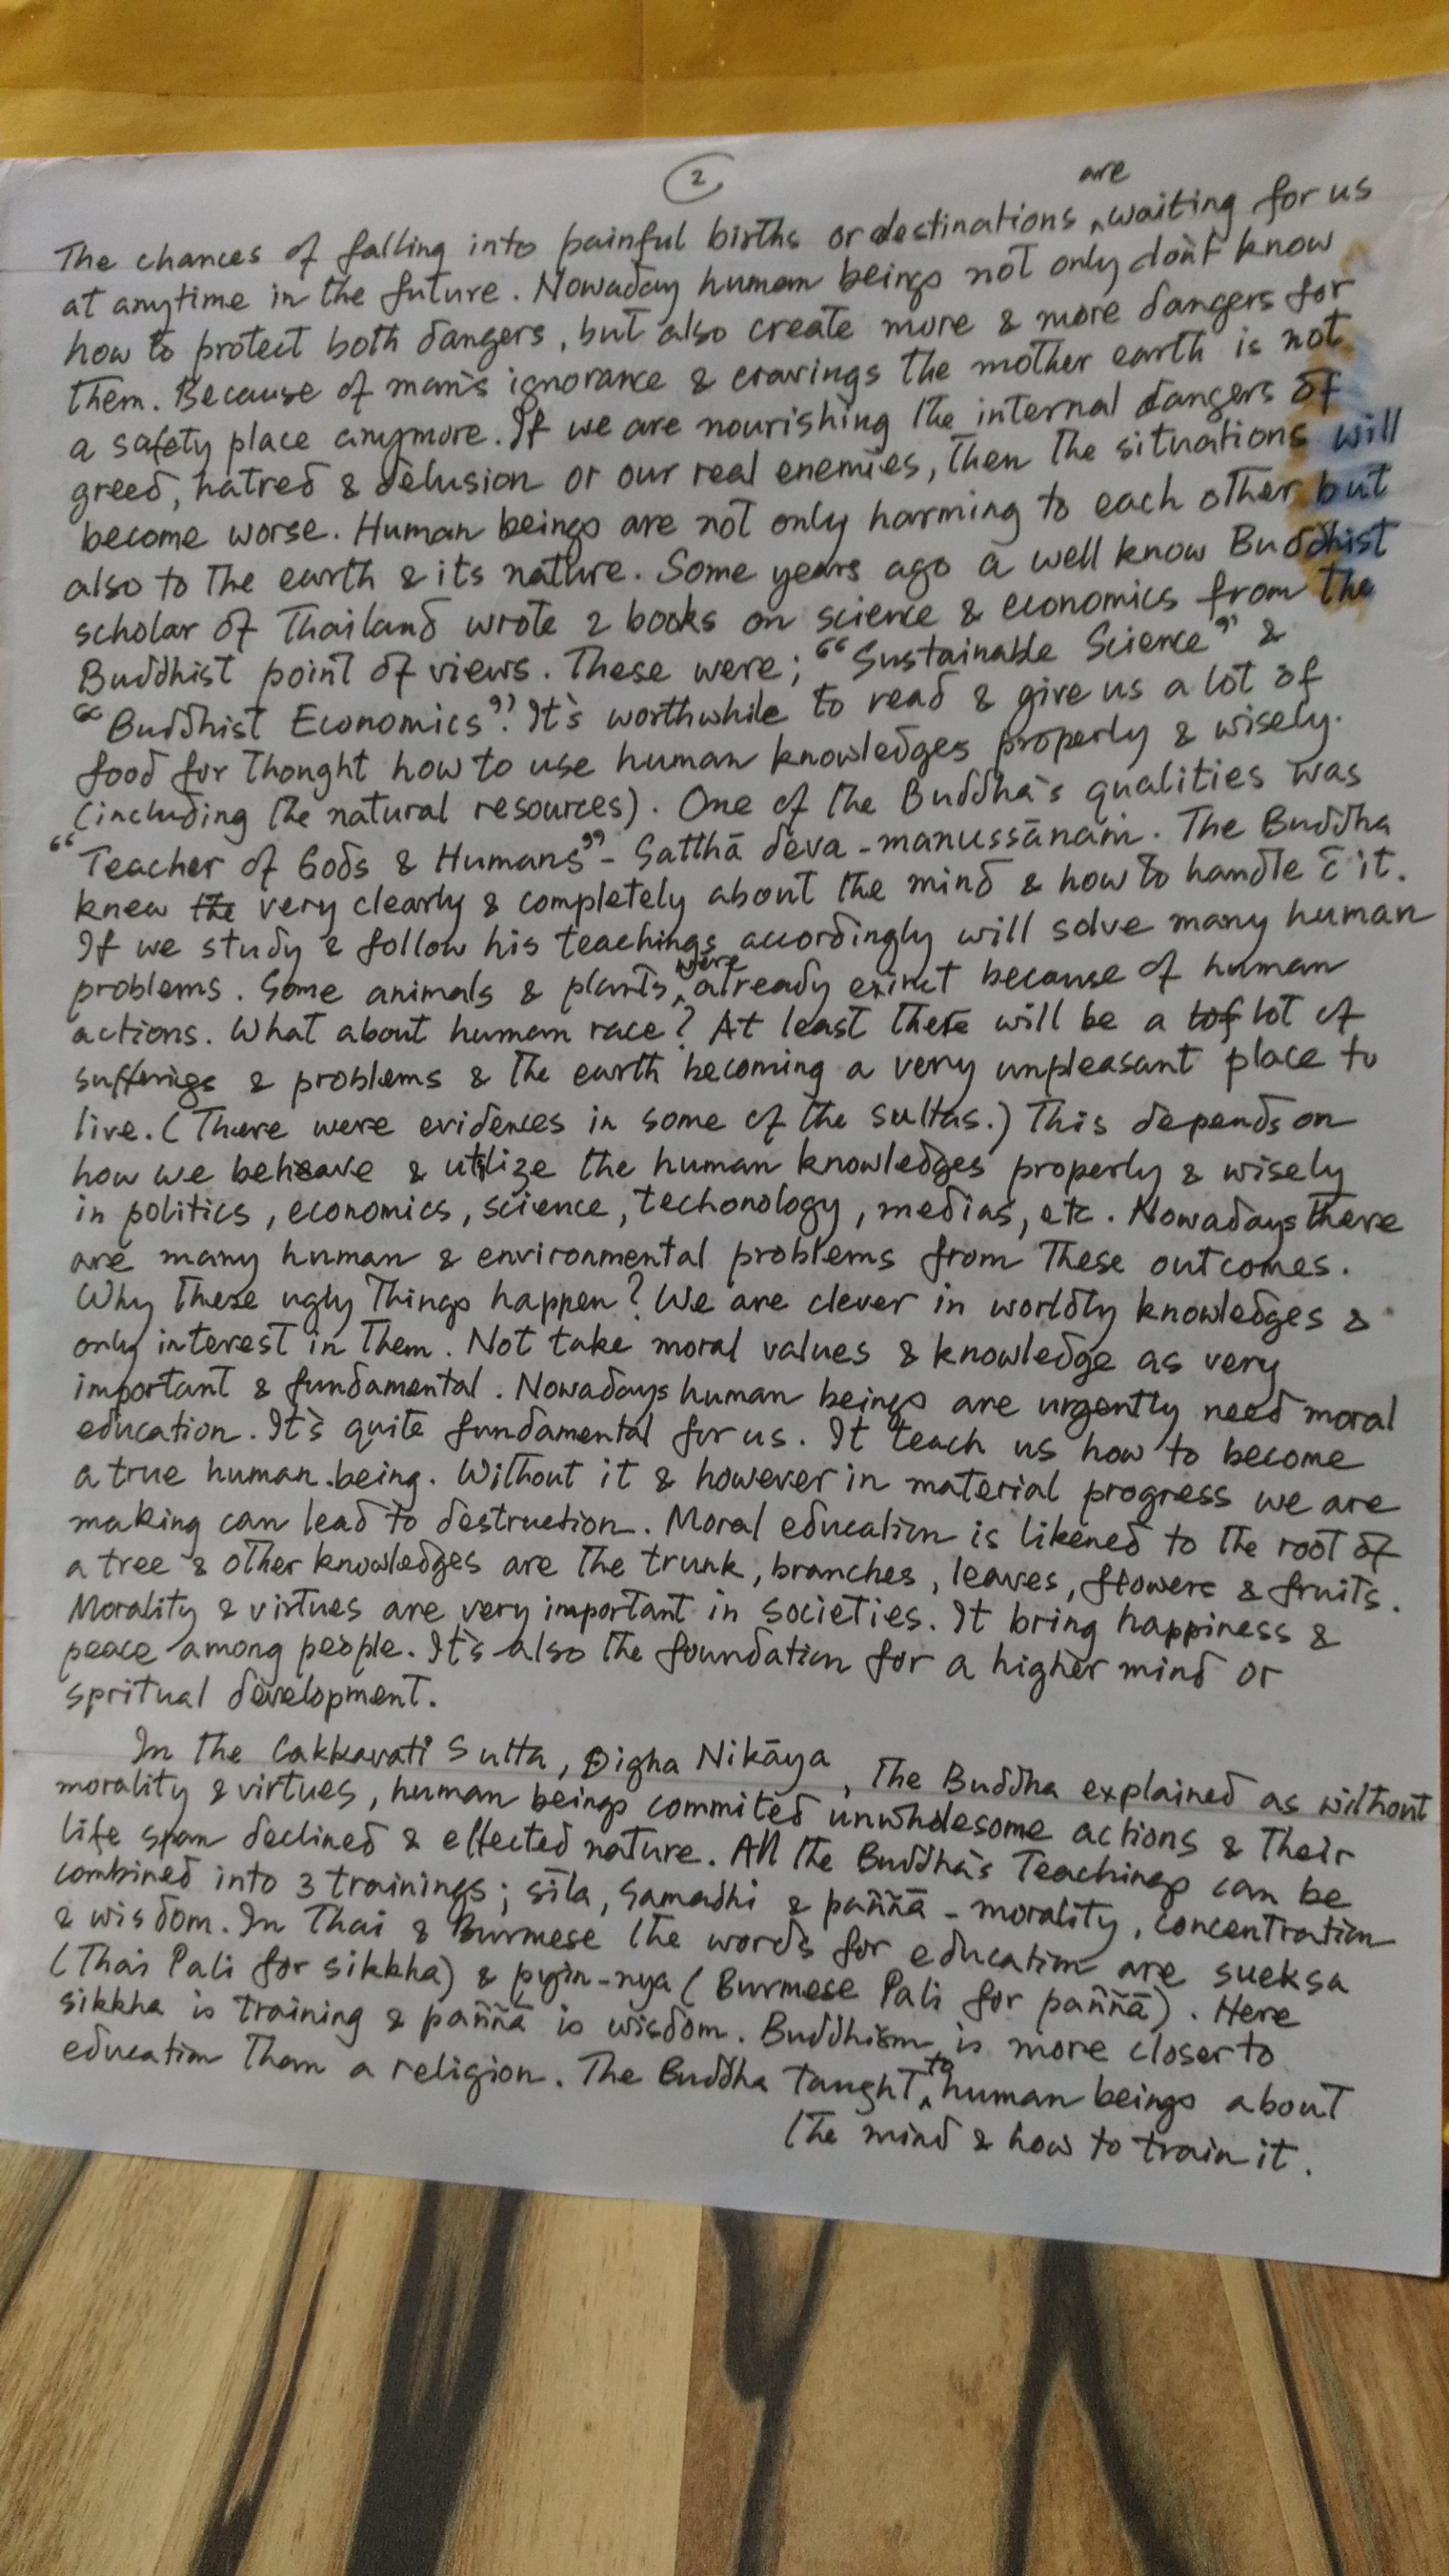 2
The chances of falling into painful births or destinations are waiting for us
at anytime in the future. Nowaday human beings not only don't know
how to protect both dangers, but also create more & more dangers for
them. Because of man's ignorance & cravings the mother earth is not
a safety place anymore. If we are nourishing the internal dangers of
greed, hatred & delusion or our real enemies, then the situations will
become worse. Human beings are not only harming to each other but
also to the earth & its nature. Some years ago a well know Buddhist
scholar of Thailand wrote 2 books on science & economics from the
Buddhist point of views. These were; "Sustainable Science" &
"Buddhist Economics". It's worthwhile to read & give us a lot of
food for thought how to use human knowledges properly & wisely.
(including the natural resources). One of the Buddha's qualities was
"Teacher of Gods & Humans" - Satthā deva-manussānaṁ. The Buddha
knew the very clearly & completely about the mind & how to handle c̄ it.
If we study & follow his teachings accordingly will solve many human
problems. Some animals & plants were already exinct because of human
actions. What about human race? At least there will be a lof lot of
sufferings & problems & the earth becoming a very unpleasant place to
live. (There were evidences in some of the suttas.) This depends on
how we beheave & utilize the human knowledges properly & wisely
in politics, economics, science, techonology, medias, etc. Nowadays there
are many human & environmental problems from these outcomes.
Why these ugly things happen? We are clever in worldly knowledges &
only interest in them. Not take moral values & knowledge as very
important & fundamental. Nowadays human beings are urgently need moral
education. It's quite fundamental for us. It teach us how to become
a true human being. Without it & however in material progress we are
making can lead to destruction. Moral education is likened to the root of
a tree & other knowledges are the trunk, branches, leaves, flowers & fruits.
Morality & virtues are very important in societies. It bring happiness &
peace among people. It's also the foundation for a higher mind or
spritual development.
In the Cakkavati Sutta, Digha Nikāya, the Buddha explained as without
morality & virtues, human beings commited unwholesome actions & their
life span declined & effected nature. All the Buddha's Teachings can be
combined into 3 trainings; sīla, samadhi & paññā - morality, concentration
& wisdom. In Thai & Burmese the words for education are sueksa
(Thai Pali for sikkha) & pyin-nya (Burmese Pali for paññā). Here
sikkha is training & paññā is wisdom. Buddhism is more closer to
education than a religion. The Buddha taught to human beings about
the mind & how to train it.